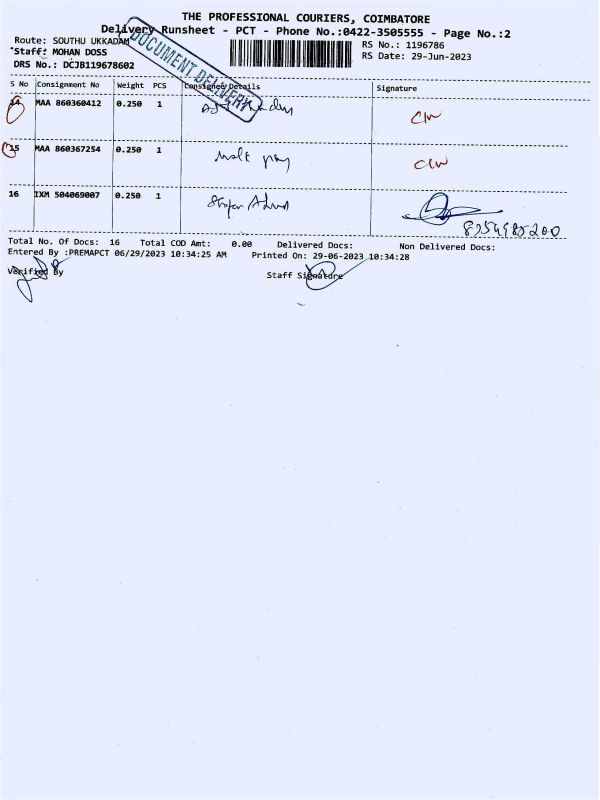 THE PROFESSIONAL COURIERS, COIMBATORE
Delivery Runsheet - PCT - Phone No.:0422-3505555 - Page No.:2
Route: SOUTHU UKKADAM
RS No.: 1196786
*Staff: MOHAN DOSS
RS Date: 29-Jun-2023
DRS No.: DCJB119678602
DOCUMENT DELIVERY
S No Consignment No Weight PCS Consignee Details Signature
14 MAA 860360412 0.250 1
15 MAA 860367254 0.250 1
16 IXM 504069007 0.250 1
8254985200
Total No. Of Docs: 16 Total COD Amt: 0.00 Delivered Docs: Non Delivered Docs:
Entered By :PREMAPCT 06/29/2023 10:34:25 AM Printed On: 29-06-2023 10:34:28
Verified By Staff Signature